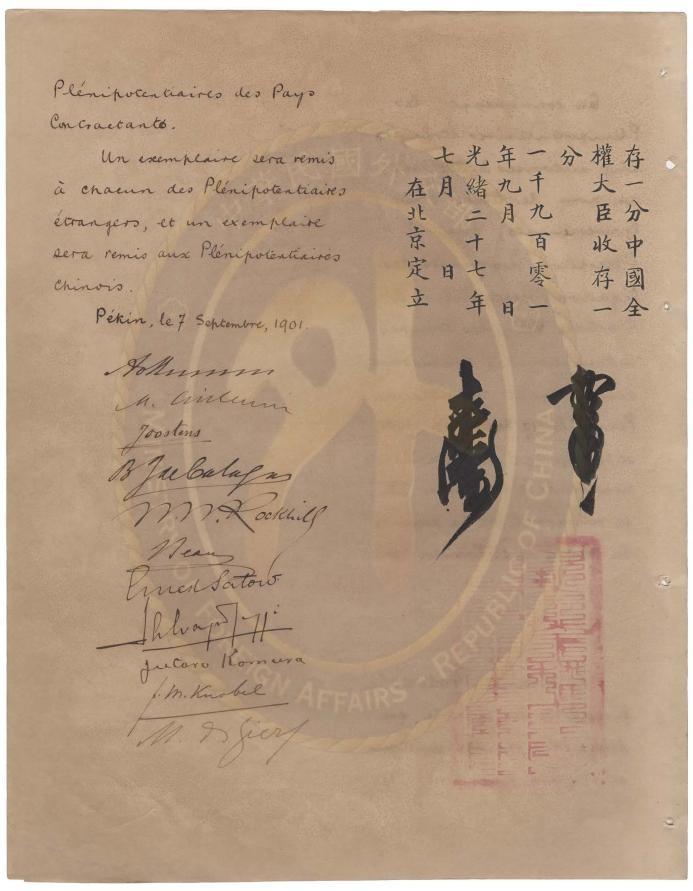 Plénipotentiaires des Pays
Contractants.
Un exemplaire sera remis
à chacun des Plénipotentiaires
étrangers, et un exemplaire
sera remis aux Plénipotentiaires
Chinois.
Pékin, le 7 Septembre, 1901.
Joostens
W. W. Rockhill
Ernest Satow
Jutaro Komura
F. M. Knobel
M. de Giers
存一分中國全
權大臣收存一
分
一千九百零一
年九月 日
光緒二十七年
七月 日
在北京定立
FOREIGN AFFAIRS - REPUBLIC OF CHINA